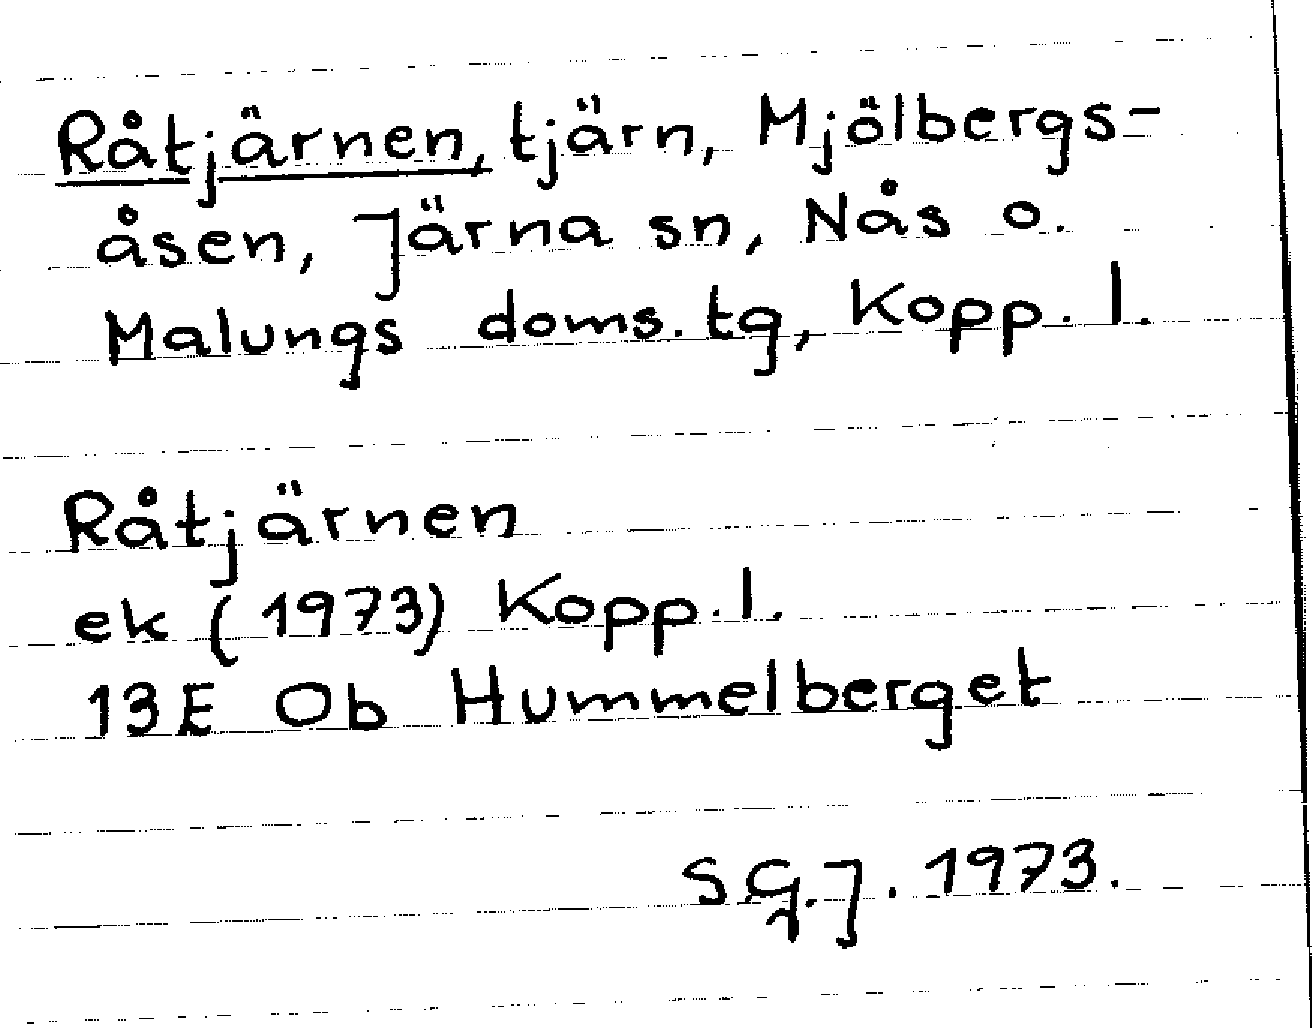 Råtjärnen, tjärn, Mjölbergs-
åsen, Järna sn, Nås o.
Malungs doms. tg, Kopp. l.
Råtjärnen
ek (1973) Kopp. l.
13E Ob Hummelberget
S.G.J. 1973.